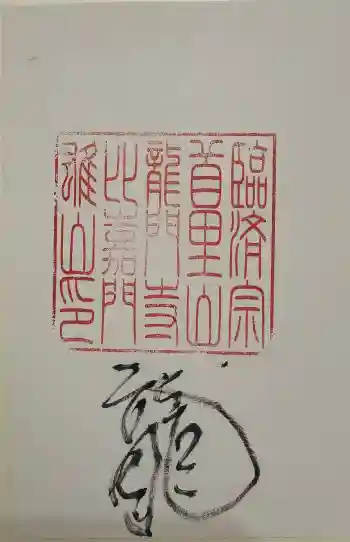 臨済宗
首里山
龍門寺
比嘉門
山印
龍